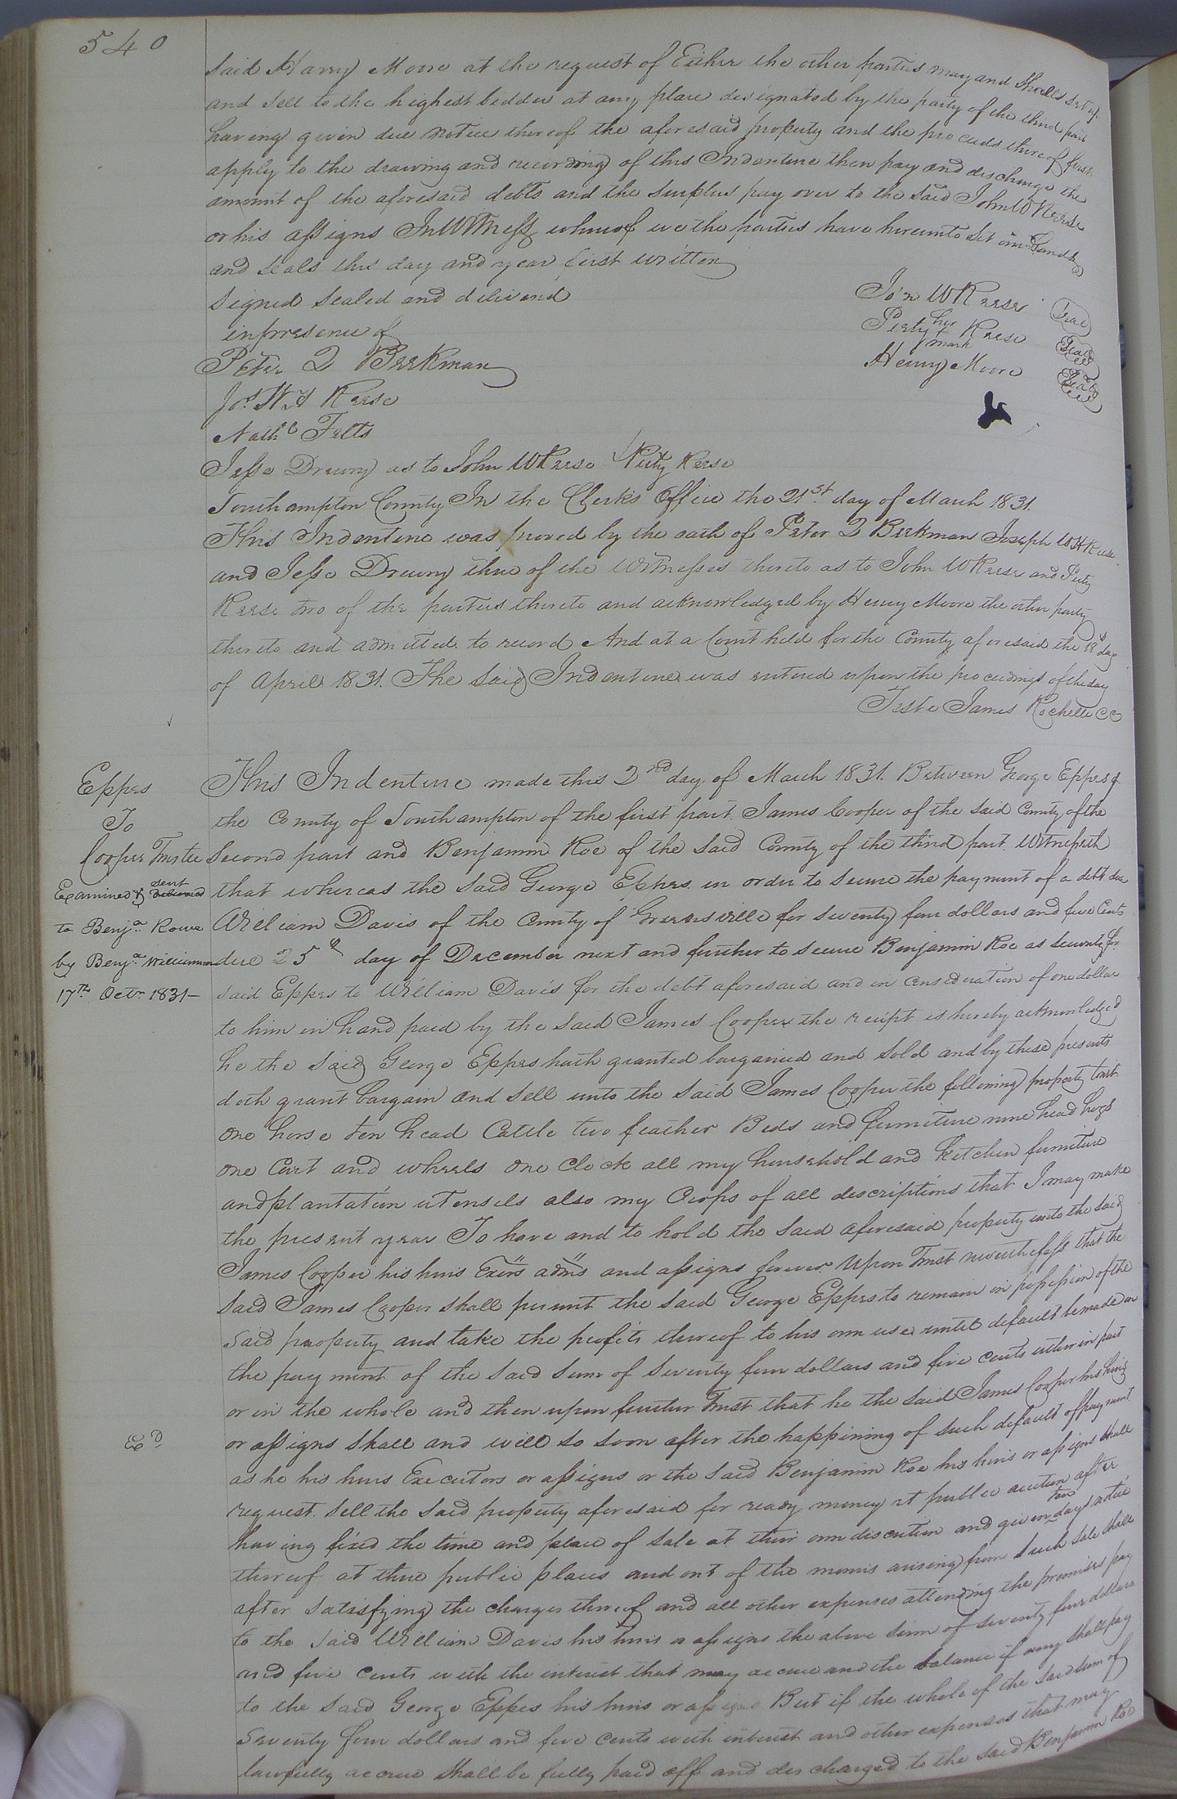 540
said Harry Moore at the request of Either the other parties may and shall set up
and sell to the highest bedder at any place designated by the party of the third part
having given due notice thereof the aforesaid property and the proceeds thereof first
apply to the drawing and recording of this Indenture then pay and discharge the
amount of the aforesaid debts and the surplus pay over to the said John W Reese
or his assigns In Witness whereof we the parties have hereunto set our hands
and seals this day and year first written
Signed Sealed and deliverd
in presence of
Peter Q Beekman
Jos. W H Reese
Nathl. Felts
Jesse Drewry as to John W Reese & Peity Reese
Jo'n W Reese Seal
Peity her mark Reese Seal
Henry Moore Seal
Southampton County In the Clerks Office the 21st day of March 1831.
This Indenture was proved by the oath of Peter Q Beekman Joseph W H Reese
and Jesse Drewry three of the Witnesses thereto as to John W Reese and Peity
Reese two of the parties thereto and acknowledged by Henry Moore the other party
thereto and admitted to record And at a Court held for the County aforesaid the 18th day
of April 1831. The said Indenture was entered upon the proceedings of the day
Teste James Rochelle CC
Eppes
To
Cooper Trustee
Examined & sent delivered
to Benja. Rowe
by Benja. Williamson
17th Octr. 1831 -
This Indenture made this 2nd day of March 1831. Between George Eppes of
the County of Southampton of the first part James Cooper of the said County of the
Second part and Benjamin Roe of the said County of the third part Witnesseth
that whereas the said George Eppes in order to secure the payment of a debt due
William Davis of the County of Greensville for seventy four dollars and five Cents
due 25th day of December next and further to secure Benjamin Roe as security for
said Eppes to William Davis for the debt aforesaid and in consideration of one dollar
to him in hand paid by the said James Cooper the reciept is hereby acknowledged
he the said George Eppes hath granted bargained and sold and by these presents
doth grant bargain and sell unto the said James Cooper the following property towit
One horse ten head Cattle two feather Beds and furniture nine head hogs
one Cart and wheels one Clock all my household and Kitchen furniture
and plantation utensils also my Crops of all descriptions that I may make
the present year To have and to hold the said aforesaid property unto the said
James Cooper his heirs Exors adms and assigns forever Upon Trust nevertheless that the
said James Cooper shall permit the said George Eppes to remain in possession of the
said property and take the profits thereof to his own use until default be made in
the payment of the said sum of Seventy four dollars and five cents either in part
or in the whole and then upon further Trust that he the said James Cooper his heirs
or assigns shall and will so soon after the happining of such default of payment
Exd
as he his heirs Executors or assigns or the said Benjamin Roe his heirs or assigns shall
request sell the said property aforesaid for ready money at public auction after
having fixed the time and place of sale at their own discretion and given two days notice
thereof at three public places and out of the monies arising from such sale shall
after satisfying the charges thereof and all other expenses attending the premises pay
to the said William Davis his heirs or assigns the above sum of seventy four dollars
and five cents with the interest that may accrue and the balance if any shall pay
to the said George Eppes his heirs or assigns But if the whole of the said sum of
Seventy four dollars and five cents with interest and other expenses that may
lawfully accrue shall be fully paid off and discharged to the said Benjamin Roe